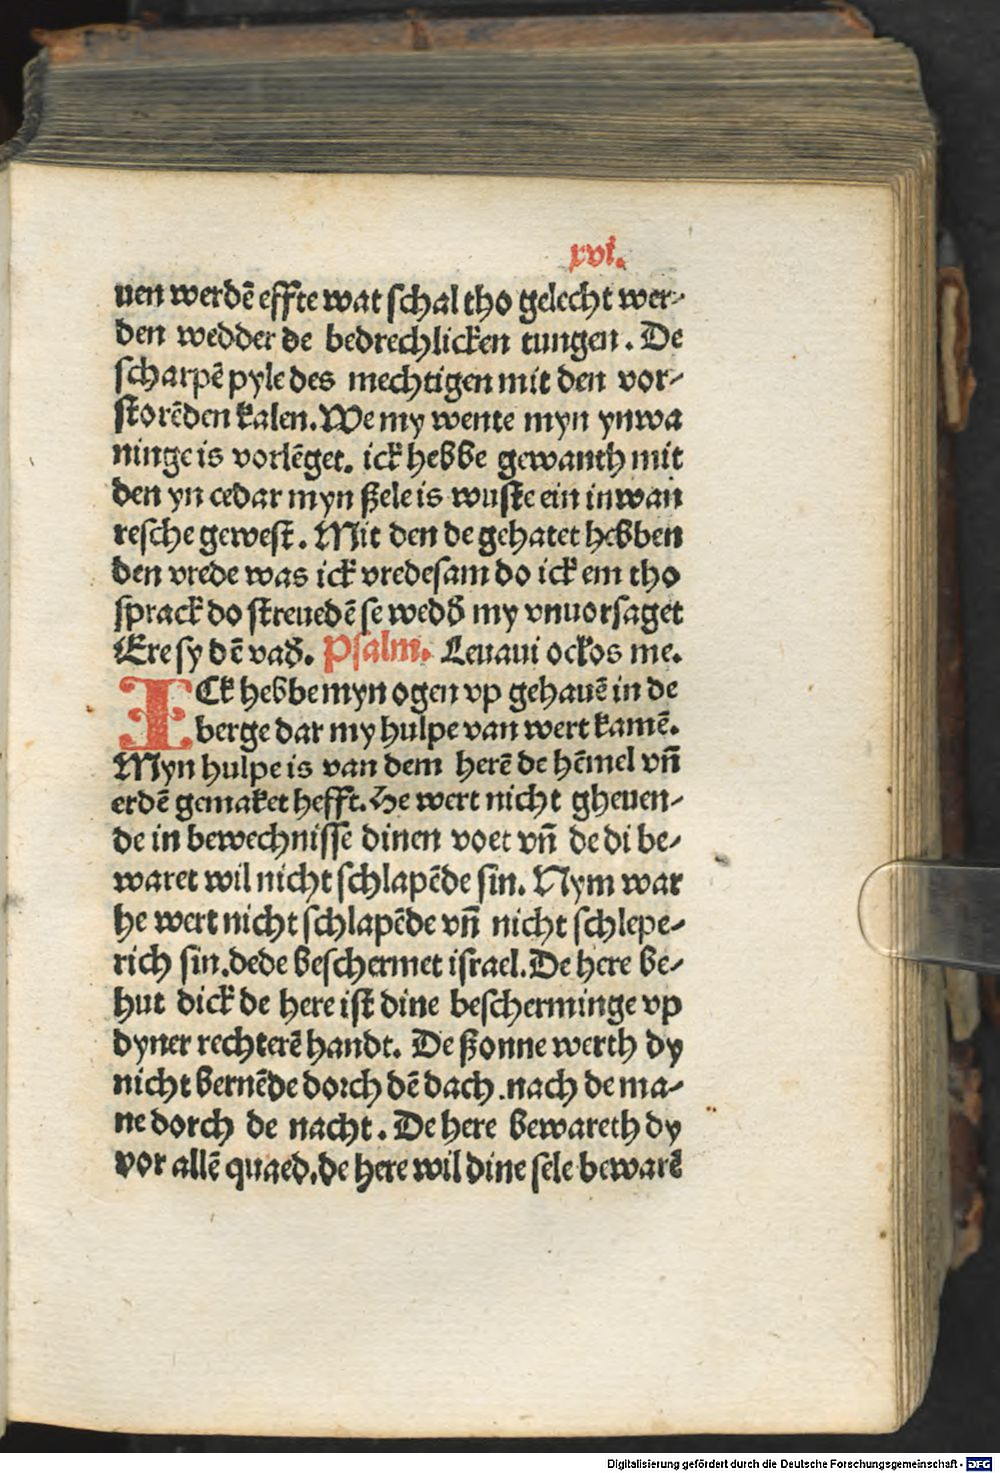 xvi.
uen werdē effte wat schal tho gelecht wer-
den wedder de bedrechlicken tungen. De
scharpē pyle des mechtigen mit den vor-
storēden kalen. We my wente myn ynwa
ninge is vorlēget. ick hebbe gewanth mit
den yn cedar myn ßele is wuste ein inwan
resche gewest. Mit den de gehatet hebben
den vrede was ick vredesam do ick em tho
sprack do streuedē se wedd̄ my vnuorsaget
Ere sy dē vad̄. Psalm. Leuaui ockos me.
ICk hebbe myn ogen vp gehauē in de
berge dar my hulpe van wert kamē.
Myn hulpe is van dem herē de hēmel vn̄
erdē gemaket hefft. He wert nicht gheuen-
de in bewechnisse dinen voet vn̄ de di be-
waret wil nicht schlapēde sin. Nym war
he wert nicht schlapēde vn̄ nicht schlepe-
rich sin. dede beschermet israel. De here be-
hut dick de here ist dine bescherminge vp
dyner rechterē handt. De ßonne werth dy
nicht bernēde dorch dē dach. nach de ma-
ne dorch de nacht. De here bewareth dy
vor allē quaed. de here wil dine sele bewarē
Digitalisierung gefördert durch die Deutsche Forschungsgemeinschaft - DFG